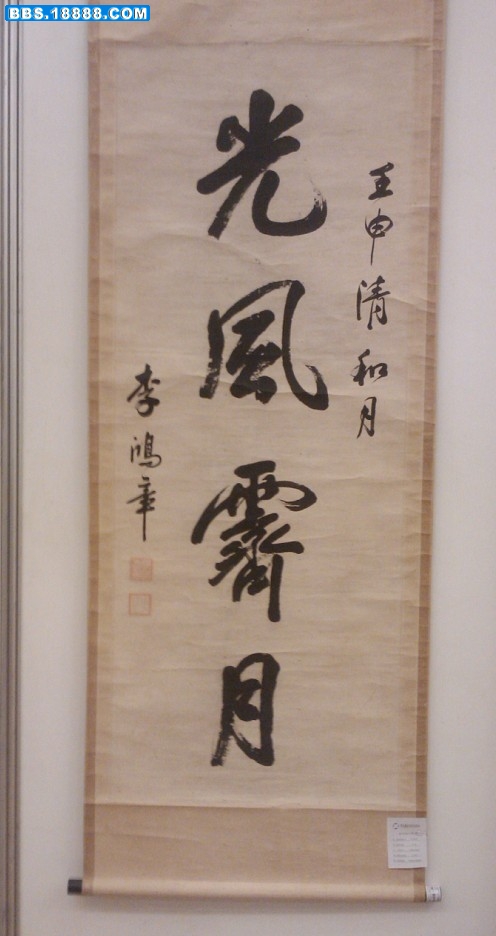 BBS.18888.COM
壬申清和月
光風霽月
李鴻章